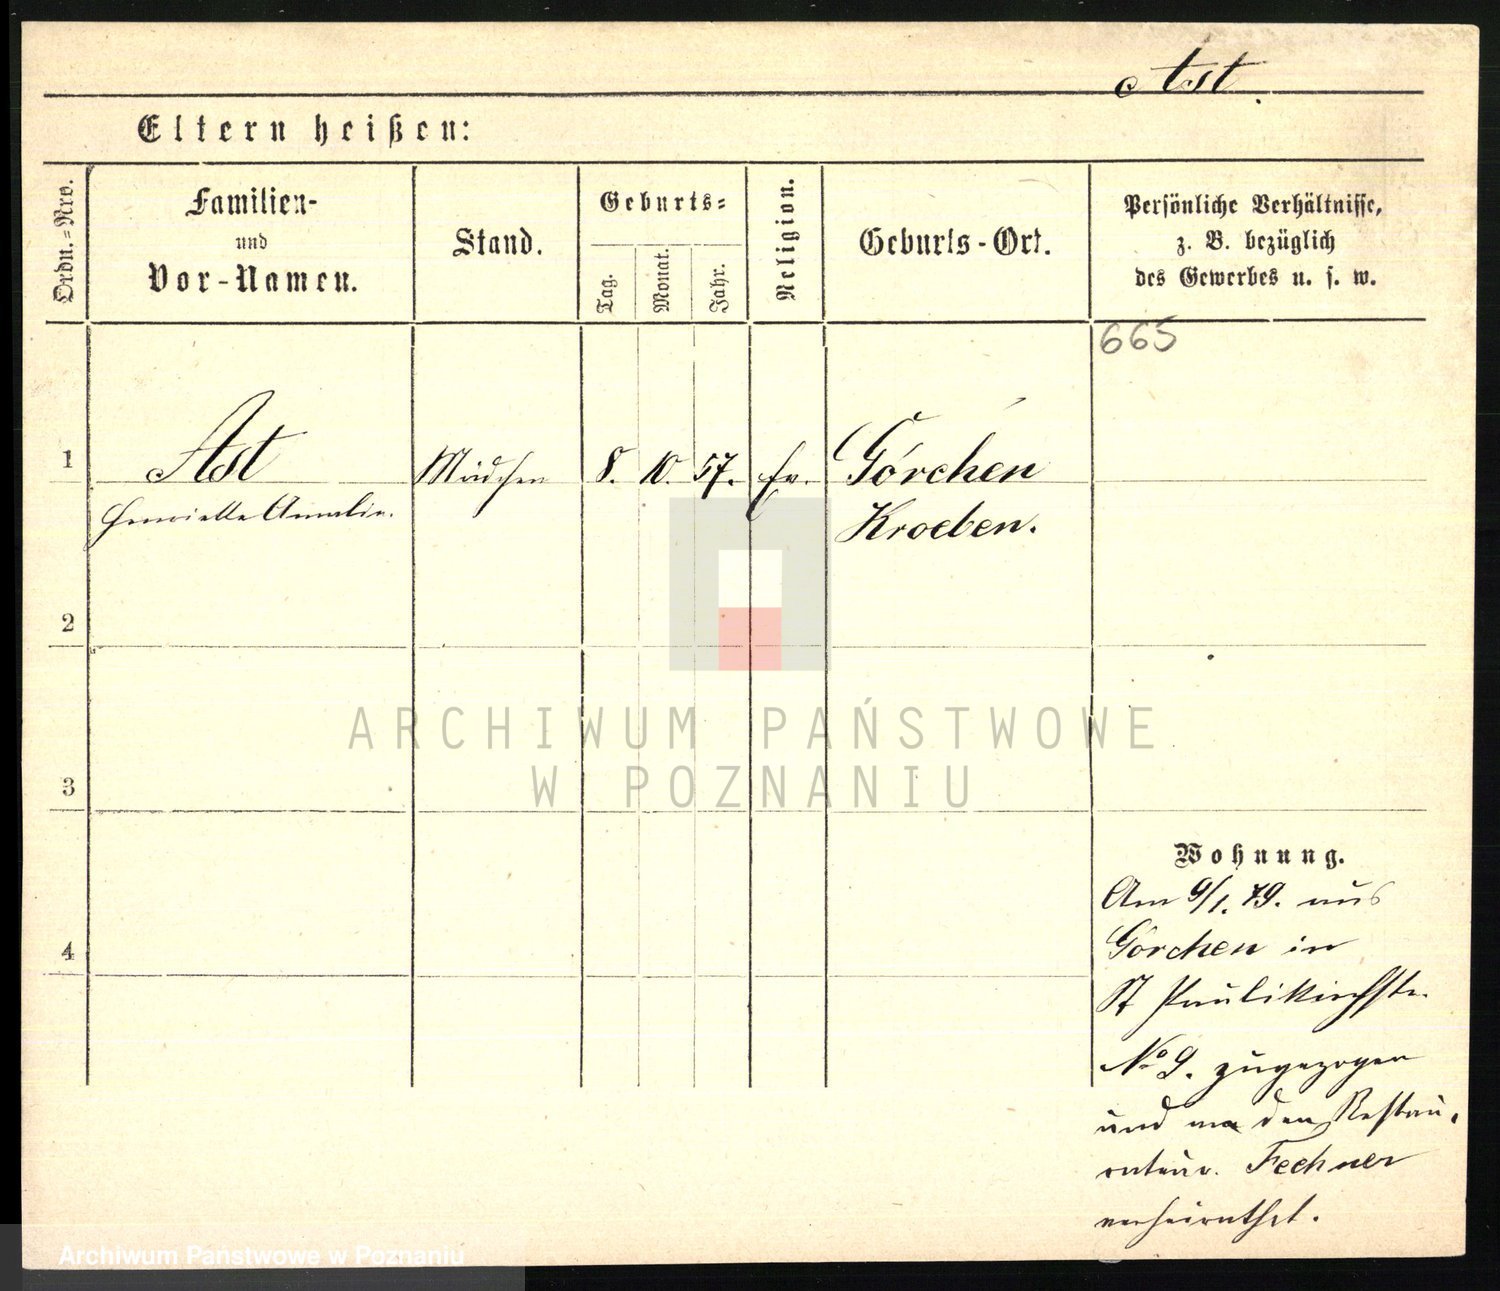 Ast
Eltern heißen:
Ordn.=Nro.
Familien-
und
Vor-Namen.
Stand.
Geburts=
Tag.
Monat.
Jahr.
Religion.
Geburts-Ort.
Persönliche Verhältnisse,
z. B. bezüglich
des Gewerbes u. s. w.
665
1
Ast
Mädchen
8. 10. 57.
Ev.
Görchen
Henriette Amalie.
Kroeben.
2
ARCHIWUM PAŃSTWOWE
W POZNANIU
3
Wohnung.
Am 9/1. 79. aus
Görchen in
St Paulikirchstr.
4
No 9. zugezogen
und an den Restau-
rateur. Fechner
verheirathet.
Archiwum Państwowe w Poznaniu